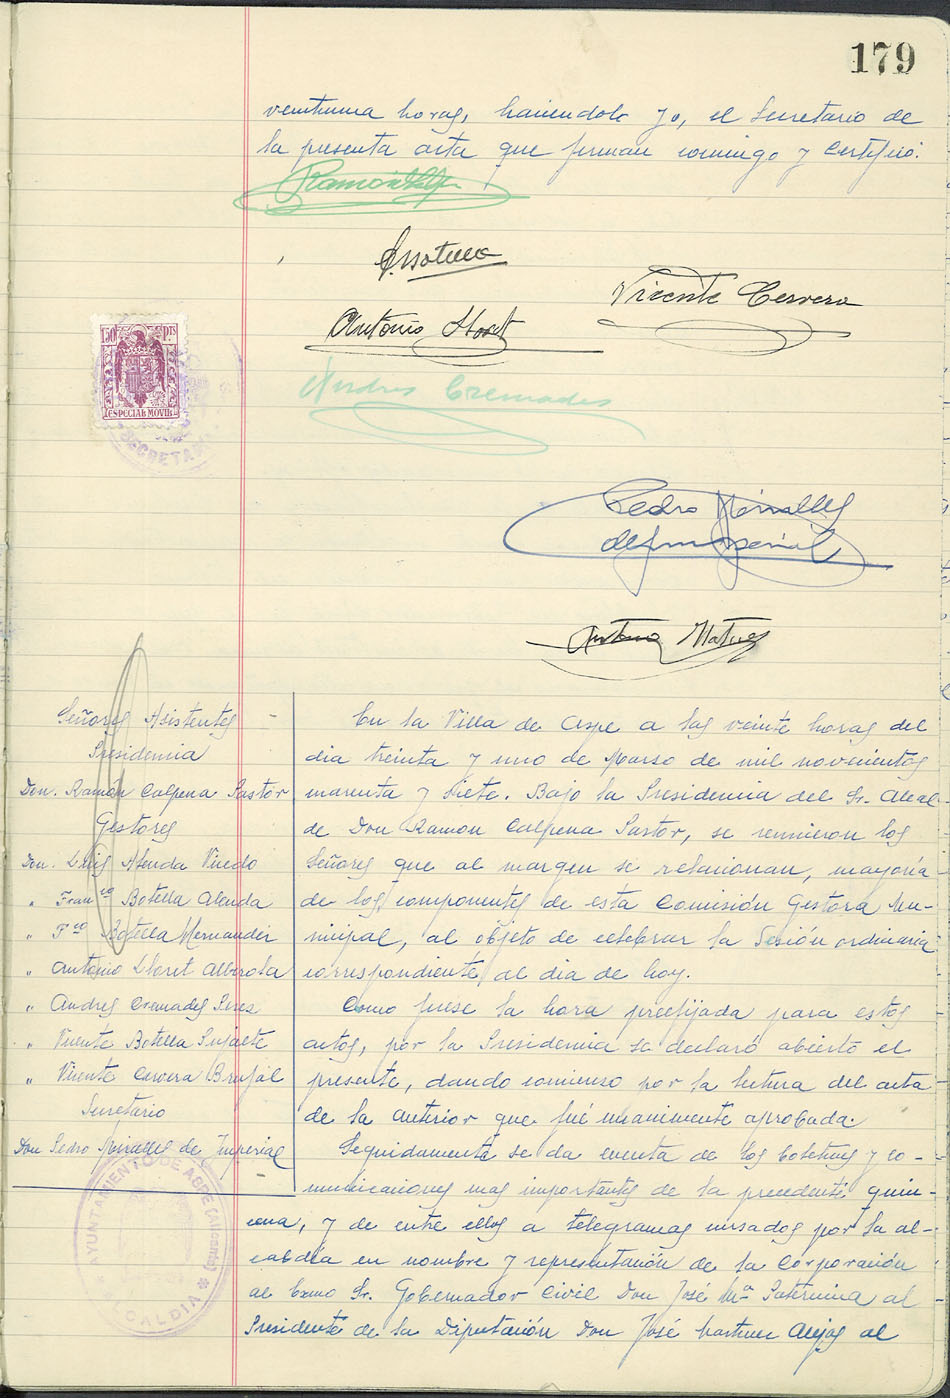 179
veintiuna horas, haciendolo yo, el Secretario de
la presente acta que firman conmigo y Certifico.
Vicente Cervera
Antonio Lloret
1'50 Pts
ESPECIAL MOVIL
SECRETARIA
Andres Cremades
Pedro Miralles
de Imperial
Antonio Mateo
Señores Asistentes
Presidencia
Don. Ramón Calpena Pastor
Gestores
Don. Luis Alenda Vicedo
" Franco Botella Alenda
" Fco Botella Hernandez
" Antonio Lloret Alberola
" Andres Cremades Perez
" Vicente Botella Infiete
" Vicente Cervera Brufal
Secretario
Don Pedro Miralles de Imperial
AYUNTAMIENTO DE ASPE (Alicante)
ALCALDIA
En la Villa de Aspe a las veinte horas del
dia treinta y uno de Marzo de mil novecientos
cuarenta y siete. Bajo la Presidencia del Sr. Alcal-
de Don Ramon Calpena Pastor, se reunieron los
Señores que al margen se relacionan, mayoría
de los componentes de esta Comisión Gestora Mu-
nicipal, al objeto de celebrar la Sesión ordinaria
correspondiente al dia de hoy.
Como fuese la hora prefijada para estos
actos, por la Presidencia se declaró abierto el
presente, dando comienzo por la lectura del acta
de la anterior que fué unanimente aprobada.
Seguidamente se da cuenta de los boletines y co-
municaciones mas importantes de la precedente quin-
cena, y de entre ellos a telegramas cursados por la al-
caldía en nombre y representación de la Corporación
al Excmo Sr. Gobernador Civil Don José Mª Paternina al
Presidente de la Diputación Don José Martinez Alejos al